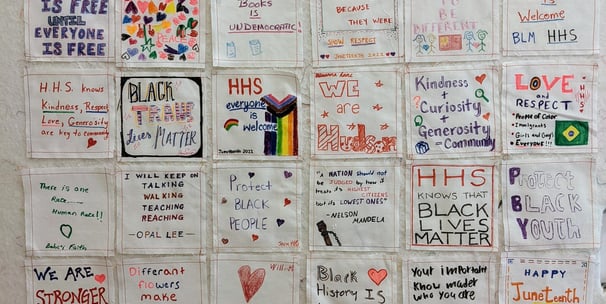 IS FREE
UNTIL
EVERYONE
IS FREE
PEACE
Books
IS
UNDEMOCRATIC!
BECAUSE
THEY WERE
SHOW RESPECT
JUNETEENTH 2022
TO BE
DIFFERENT
IS
Welcome
BLM HHS
H.H.S. knows
Kindness, Respect
Love, Generosity
are key to community
BLACK
TRANS
Lives MATTER
HHS
everyone
is
welcome
Juneteenth 2022
WE
are
Hudson
Kindness +
Curiosity
+
Generosity
= Community
LOVE
and
RESPECT
HHS
• People of Color
• Immigrants
• Girls and Gays
• Everyone!!!
There is one
Race....
Human Race!!
Baha'i Faith
I WILL KEEP ON
TALKING
WALKING
TEACHING
REACHING
-OPAL LEE-
Protect
BLACK
PEOPLE
"A NATION SHOULD
NOT BE JUDGED BY HOW IT
TREATS ITS HIGHEST
CITIZENS
but its LOWEST ONES"
-NELSON
MANDELA
HHS
KNOWS THAT
BLACK
LIVES
MATTER
Protect
BLACK
YOUTH
WE ARE
STRONGER
Differant
flowers
make
Black
History IS
Your important
Know mader
who you are
HAPPY
Juneteenth